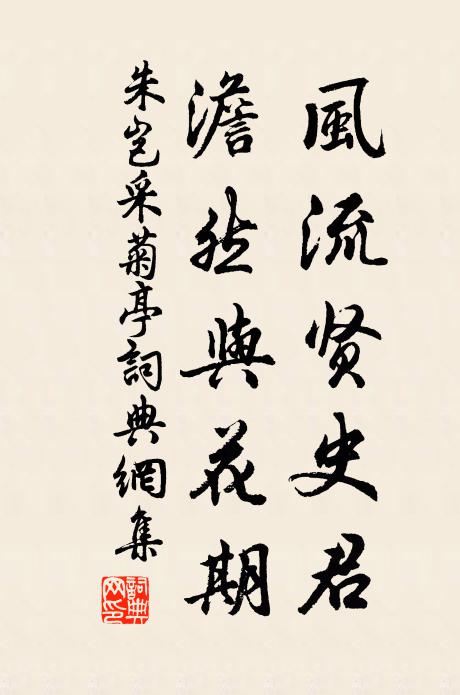 風流贤史君
澹然與花期
朱岂采菊亭詞典網集
詞典网印